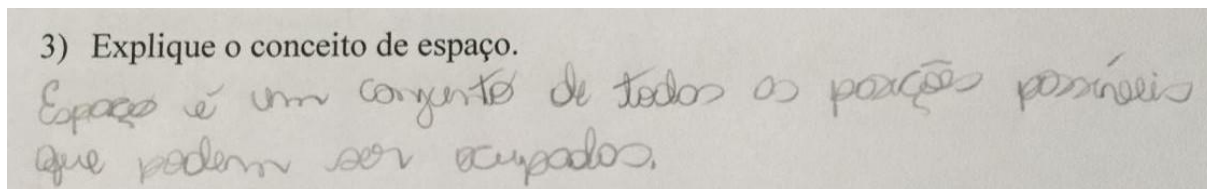 3) Explique o conceito de espaço.
Espaço é um conjunto de todos os porções possíveis
que podem ser ocupados.